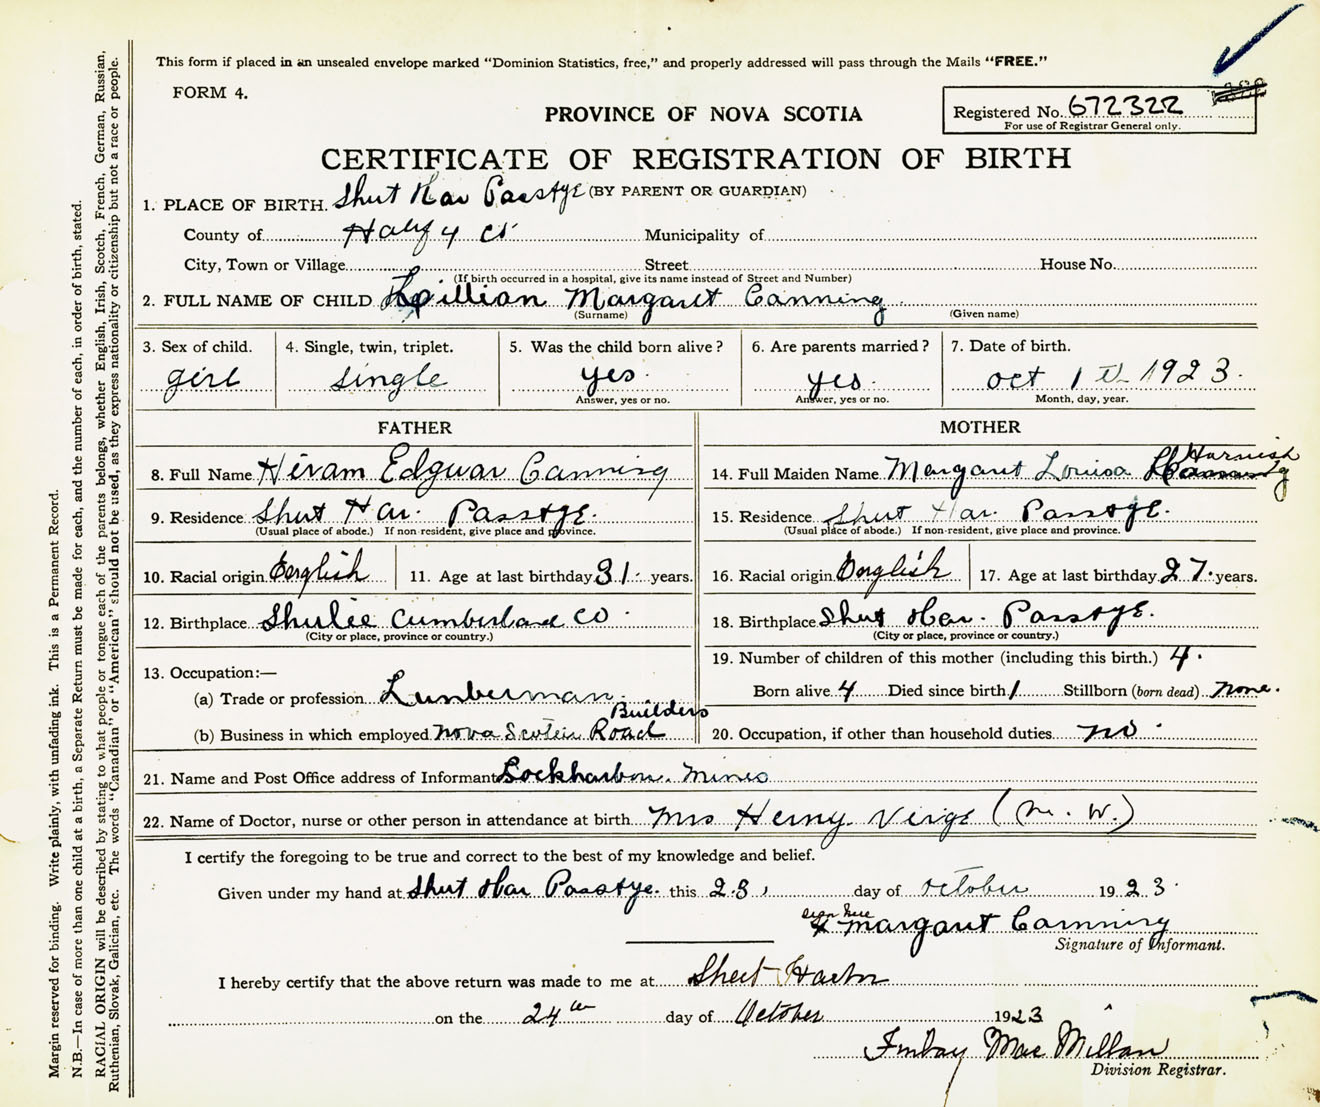 This form if placed in an unsealed envelope marked "Dominion Statistics, free," and properly addressed will pass through the Mails "FREE."
FORM 4.
PROVINCE OF NOVA SCOTIA
Registered No. 672322
For use of Registrar General only.
CERTIFICATE OF REGISTRATION OF BIRTH
(BY PARENT OR GUARDIAN)
1. PLACE OF BIRTH. Shut Har Passage
County of Halif y Co Municipality of
City, Town or Village Street House No.
(If birth occurred in a hospital, give its name instead of Street and Number)
2. FULL NAME OF CHILD Lillian Margaret Canning
(Surname) (Given name)
3. Sex of child. 4. Single, twin, triplet. 5. Was the child born alive? 6. Are parents married? 7. Date of birth.
girl single yes. yes. oct 1 th 1923.
Answer, yes or no. Answer, yes or no. Month, day, year.
FATHER MOTHER
8. Full Name Hiram Edgwar Canning 14. Full Maiden Name Margaret Louisa Harnish
9. Residence Shut Har. Passage. 15. Residence Shut Har. Passage.
(Usual place of abode.) If non-resident, give place and province. (Usual place of abode.) If non-resident, give place and province.
10. Racial origin English 11. Age at last birthday 31 years. 16. Racial origin English 17. Age at last birthday 27 years.
12. Birthplace Shulie Cumberland CO 18. Birthplace Shut Har. Passage.
(City or place, province or country.) (City or place, province or country.)
13. Occupation:— 19. Number of children of this mother (including this birth.) 4.
(a) Trade or profession Lumberman. Born alive 4 Died since birth 1 Stillborn (born dead) none.
(b) Business in which employed Nova Scotia Road Builders 20. Occupation, if other than household duties no
21. Name and Post Office address of Informant Mines
22. Name of Doctor, nurse or other person in attendance at birth Mrs Henry (M. W.)
I certify the foregoing to be true and correct to the best of my knowledge and belief.
Given under my hand at Shut Har Passage. this 23, day of october 1923.
sign here
x Margaret Canning
Signature of Informant.
I hereby certify that the above return was made to me at Sheet Harbor
on the 24th day of October 1923
Finlay Mac Millan
Division Registrar.
Margin reserved for binding. Write plainly, with unfading ink. This is a Permanent Record.
N.B.—In case of more than one child at a birth, a Separate Return must be made for each, and the number of each, in order of birth, stated.
RACIAL ORIGIN will be described by stating to what people or tongue each of the parents belongs, whether English, Irish, Scotch, French, German, Russian,
Ruthenian, Slovak, Galician, etc. The words "Canadian" or "American" should not be used, as they express nationality or citizenship but not a race or people.